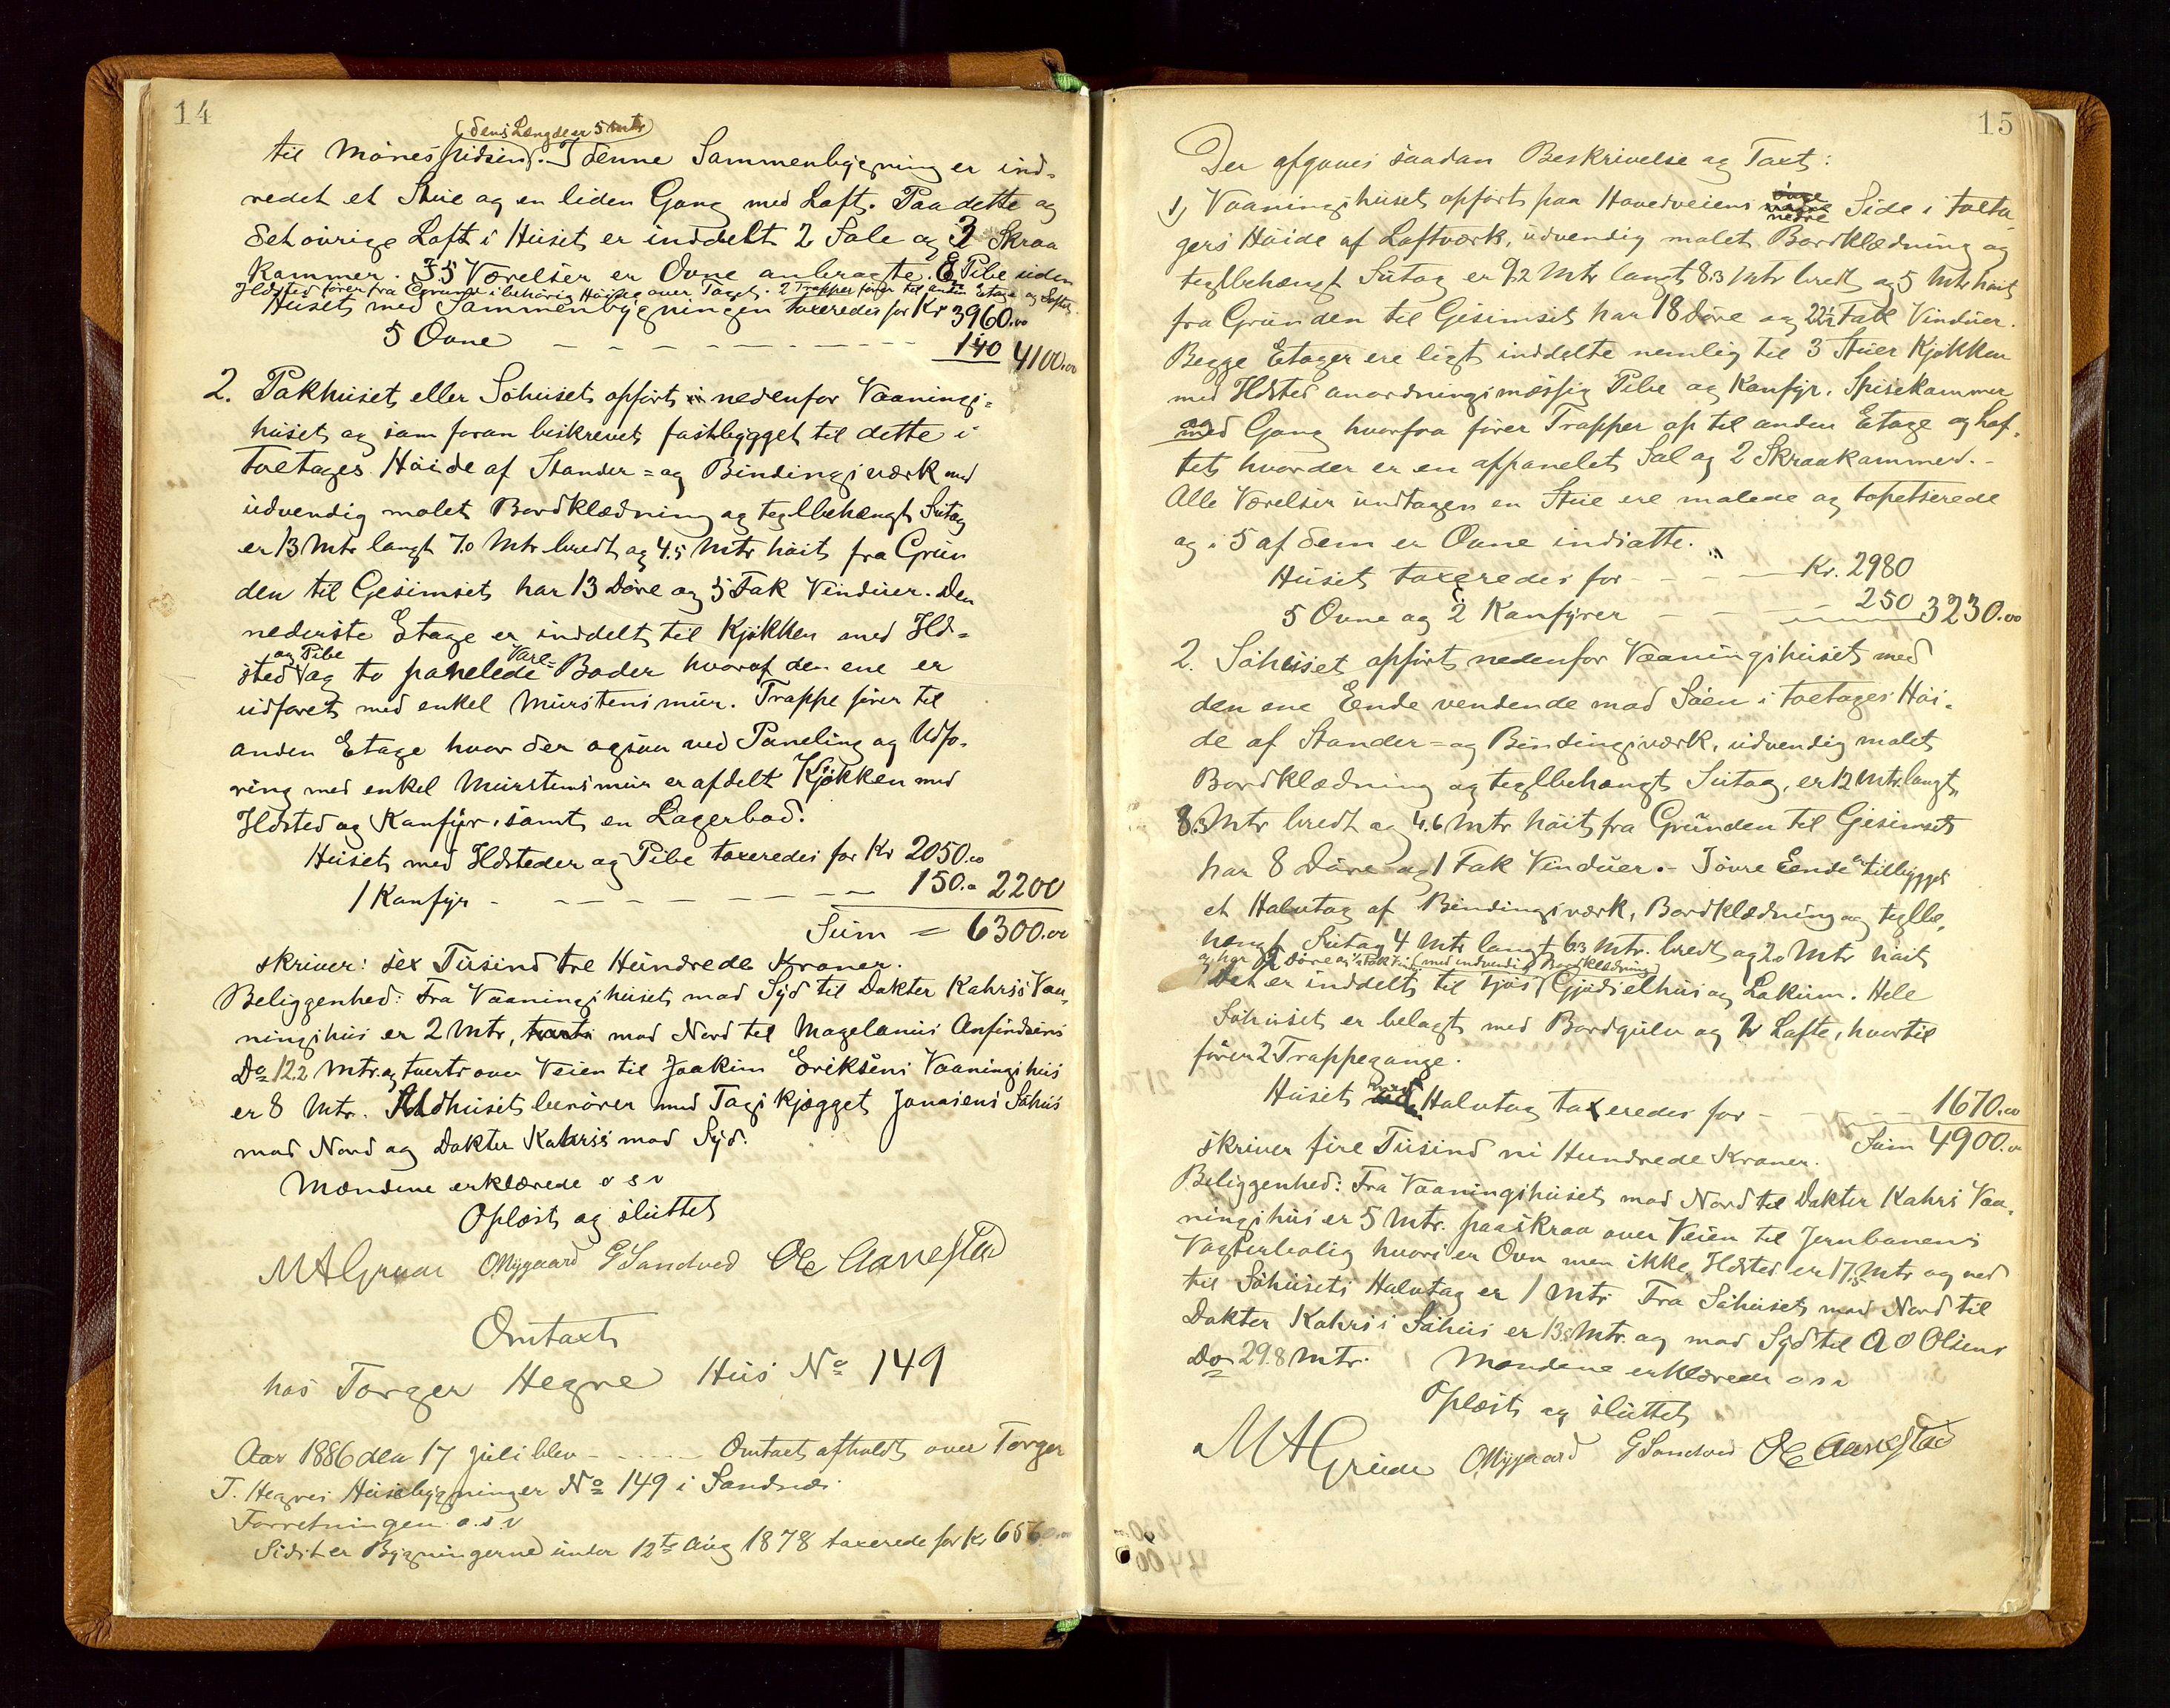 14
(dens Længde er 5 mtr)
til Mønespidsen. I denne Sammenbygning er ind-
redet et Stue og en liden Gang med Loft. Paa dette og
det øvrige Loft i Huset er inddelt 2 Sale og 3 Skraa
kammer. I 5 Værelser er Ovne anbragte. E Pibe uden
Ildsted fører fra Grund i behørig Høide over Taget. 2 Trapper fører til anden Etage og Loftet.
Huset med Sammenbygningen taxeredes for Kr 3960.00
5 Ovne — — — — — 140 4100.00
2. Pakhuset eller Søhuset opført nedenfor Vaanings=
huset og som foran beskrevet fastbygget til dette i
toetages Høide af Stander= og Bindingsværk med
udvendig malet Bordklædning og teglbehængt Sutag
er 13 Mtr langt 7.0 Mtr bredt og 4.5 Mtr høit fra Grun
den til Gesimset har 13 Døre og 5 Fak Vinduer. Den
nederste Etage er inddelt til Kjøkken med Ild=
og Pibe Vare=
sted og to panelede Boder hvoraf den ene er
udforet med enkel Murstensmur. Trappe fører til
anden Etage hvor der ogsaa ved Paneling og Udfo-
ring med enkel Murstensmur er afdelt Kjøkken med
Ildsted og Kanfyr, samt en Lagerbod.
Huset med Ildsteder og Pibe taxeredes for Kr 2050.00
1 Kanfyr - — — — — — 150.00 2200
Sum = 6300.00
skriver: sex Tusind tre Hundrede Kroner.
Beliggenhed: Fra Vaaningshuset mod Syd til Dokter Kahrs's Vaa-
ningshus er 2 Mtr, mod Nord til Magelanus Anfindsens
Do 12.2 Mtr. og tverts over Veien til Joakim Eriksens Vaaningshus
er 8 Mtr. Ildhuset berører med Tagskjægget Jonasens Søhus
mod Nord og Dokter Kahrs's mod Syd.
Mændene erklærede o s v
Oplæst og sluttet
M A Grude O Nygaard G Sandved Ole Aanestad
Omtaxt
hos Torger Hegre Hus No 149
Aar 1886 den 17 Juli blev - . . . . - Omtaxt afholdt over Torger
T. Hegres Husebygninger No 149 i Sandnæs
Forretningen o.s.v
Sidst er Bygningerne under 12te Aug 1878 taxerede for Kr
15
Der afgaves saadan Beskrivelse og Taxt:
1) Vaaningshuset opført paa Hovedveiens nedre Side i toeta
gers Høide af Loftværk, udvendig malet Bordklædning og
teglbehængt Sutag er 9.2 Mtr langt 8.3 Mtr bredt og 5 Mtr høit
fra Grunden til Gesimset har 18 Døre og 22½ Fak Vinduer.
Begge Etager ere ligt inddelte nemlig til 3 Stuer Kjøkken
med Ildsted anordningsmæssig Pibe og Kanfyr, Spisekammer
og Gang hvorfra fører Trapper op til anden Etage og Lof-
tet hvor der er en afpanelet Sal og 2 Skraakammer. -
Alle Værelser undtagen en Stue ere malede og tapetserede
og i 5 af dem er Ovne indsatte.
Huset taxeredes for - - - — Kr. 2980
5 Ovne og 2 Kanfyrer — — — 250 3230.00
2. Søhuset opført nedenfor Vaaningshuset med
den ene Eende vendende mod Søen i toetages Høi-
de af Stander= og Bindingsværk, udvendig malet
Bordklædning og teglbehængt Sutag, er 12 Mtr. langt,
8.3 Mtr bredt og 4.6 Mtr høit fra Grunden til Gesimset
har 8 Døre og 1 Fak Vinduer. - I øvre Eende er tilbygget
et Halvtag af Bindingsværk, Bordklædning og teglbe-
hængt Sutag 4 Mtr langt 6.3 Mtr. bredt og 2.0 Mtr høit
og har 2 Døre og ½ Fak Vind. (med indvendig Bordklædning)
Det er inddelt til Fjøs, Gjødselhus og Lokum. Hele
Søhuset er belagt med Bordgulv og 2 Lofte, hvortil
fører 2 Trappegange.
Huset med Halvtag taxeredes for - — - - - 1670.00
Sum 4900.00
skriver fire Tusind ni Hundrede Kroner.
Beliggenhed: Fra Vaaningshuset mod Nord til Dokter Kahrs Vaa-
ningshus er 5 Mtr. paaskraa over Veien til Jernbanens
Vogterbolig hvori er Ovn men ikke Ildsted er 17.5 Mtr og ned
til Søhusets Halvtag er 1 Mtr Fra Søhuset mod Nord til
Dokter Kahrs's Søhus er 13.8 Mtr. og mod Syd til A O Olsens
Do 29.8 Mtr. Mændene erklærede o s v
Oplæst og sluttet
M A Grude O Nygaard G Sandved Ole Aanestad